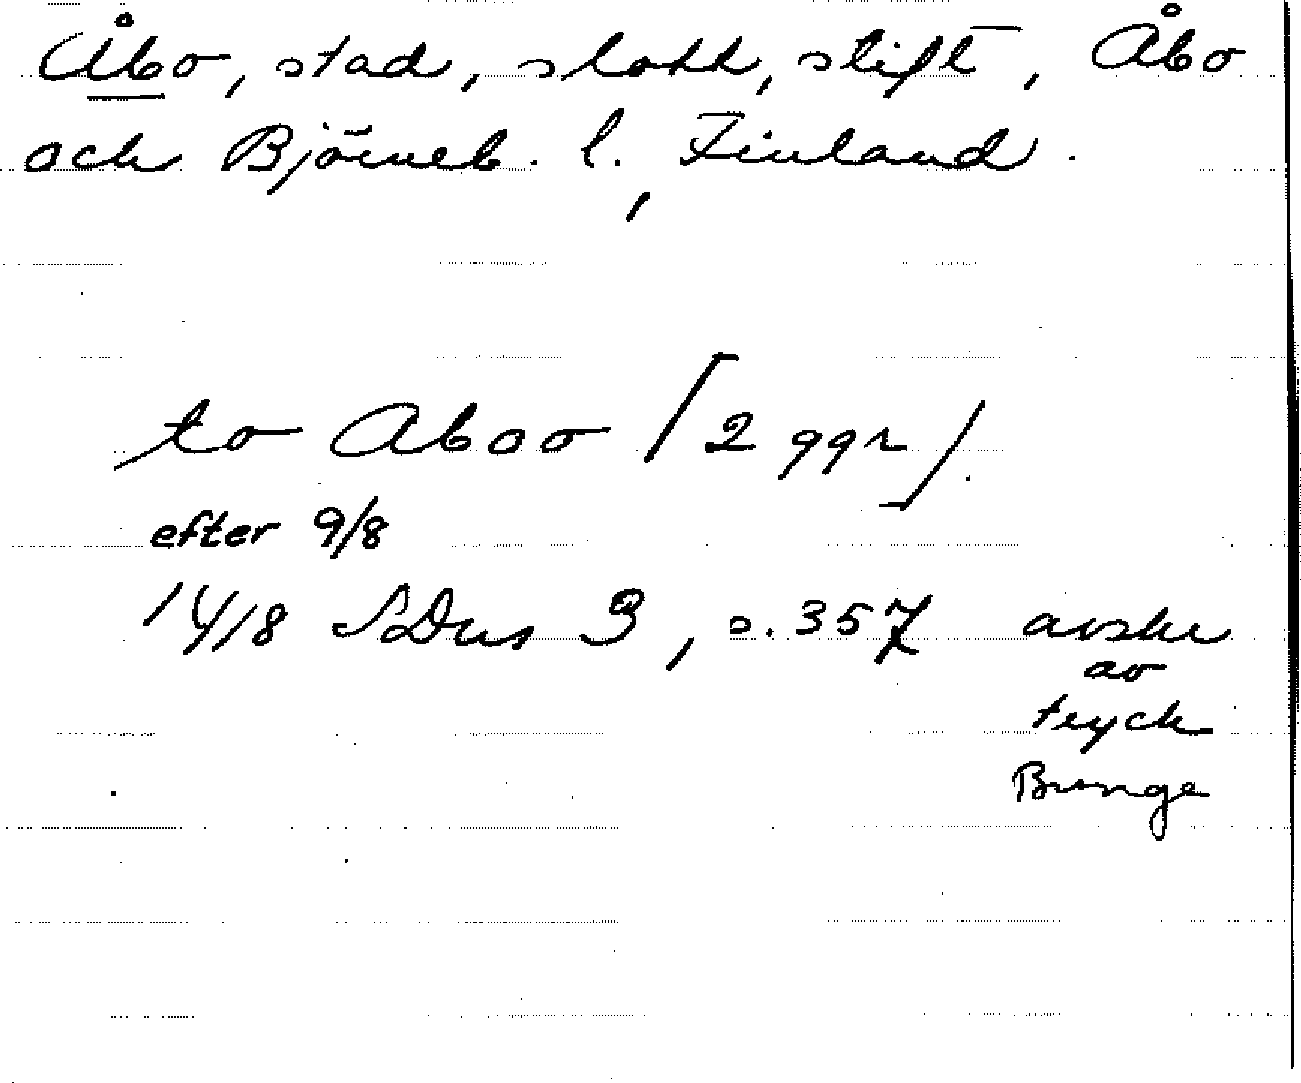 Åbo, stad, slott, stift, Åbo
och Björneb. l., Finland.
to Aboo [2 ggr]
efter 9/8
14/18 SDns 3, s. 357 avskr
av
tryck
Bunge